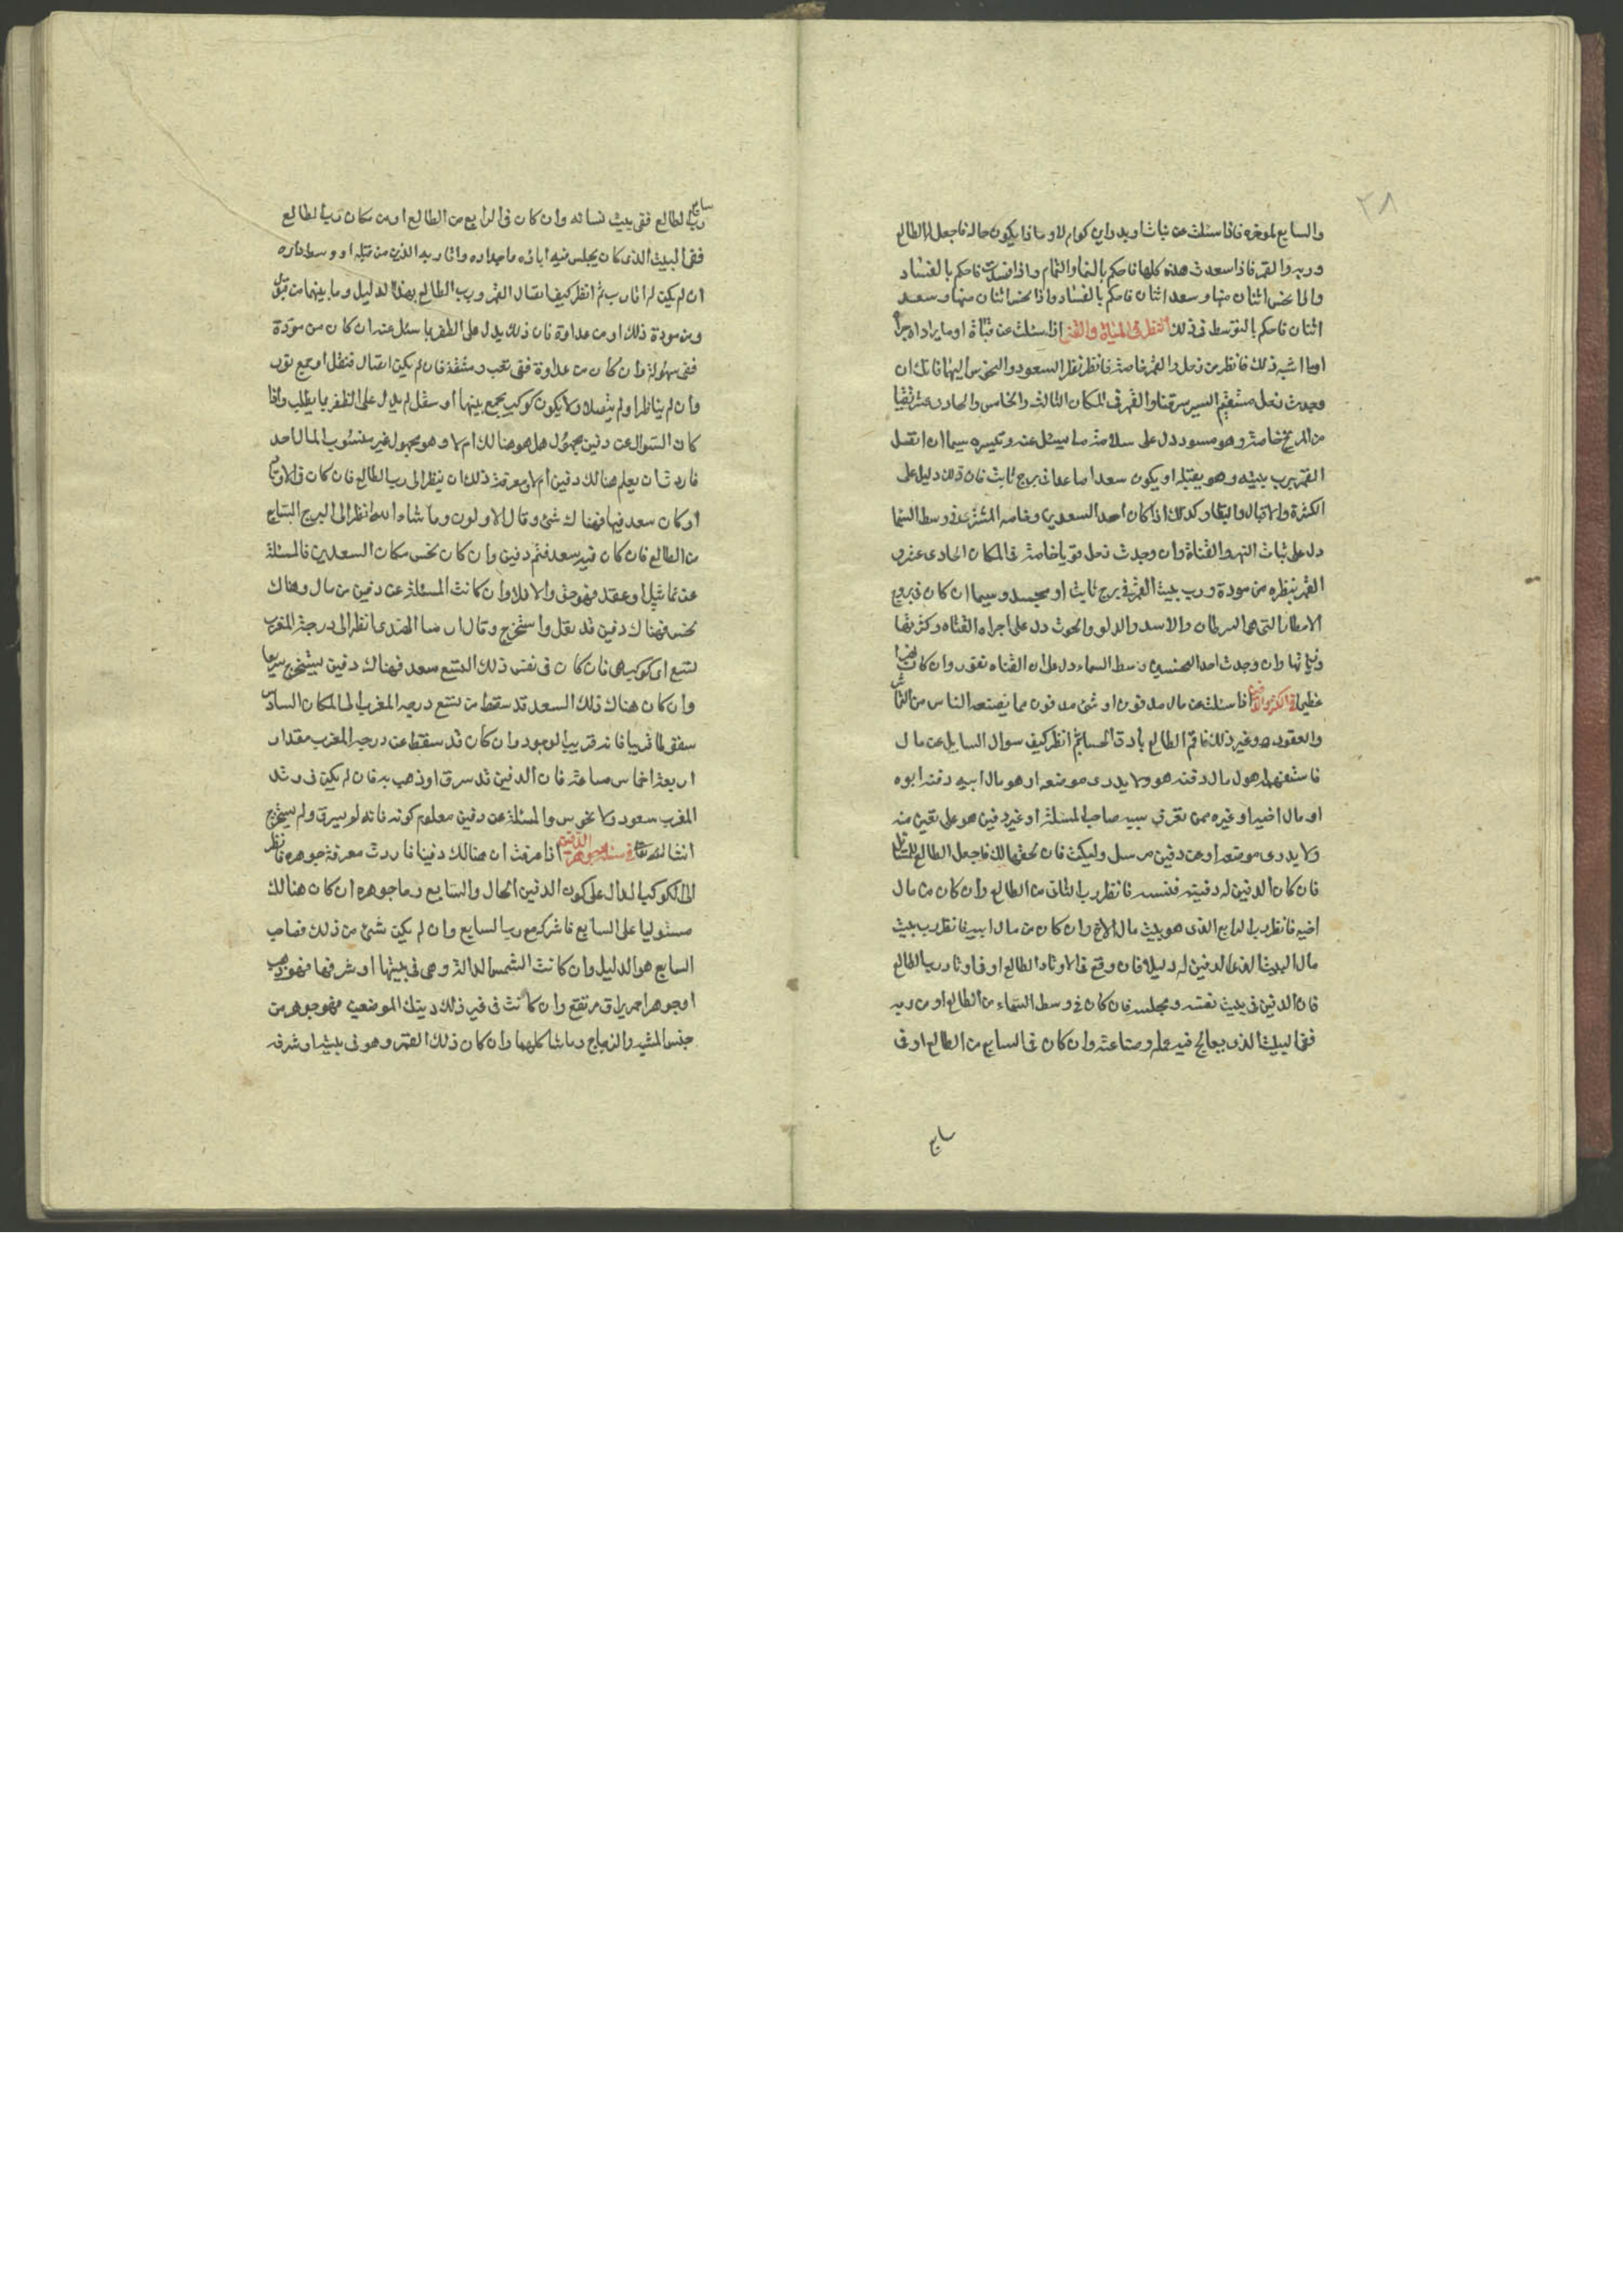 ٢٨
والسابع لمؤخره فاذا سئلت عن نبات او بدو اين كوام لا وماذا يكون حاله فاجعل له الطالع
وربه والقمر فاذا سعدت هذه كلها فاحكم بالنما والتمام واذا فسدت فاحكم بالفساد
واذا نحس اثنان منها وسعد اثنان فاحكم بالفساد واذا نحس اثنان منها وسعد
اثنان فاحكم بالتوسط فى ذلك النظر فى المياه والقنى اذا سئلت عن قناة او ما يراد اجراه
او ما اشبه ذلك فانظر من زحل والقمر خاصة فانظر نظر السعود والنحوس اليها فانك ان
وجدت زحل مستقيم السير مشرقا والقمر فى المكان الثالث والخامس والحادى عشر نقيا
من المريخ خاصة وهو مسعود دل على سلامة ما سئل عنه وتيسره سيما ان اتصل
القمر برب بيته وهو يقبله او يكون سعدا صاعدا فى برج ثابت فان ذلك دليل على
الكثرة والاقبال والبقا وكذلك اذا كان احد السعدين وخاصه المشترى فى وسط السما
دل على ثبات النهر والقناة وان وجدت زحل قويا خاصة فى المكان الحادى عشر و
القمر ينظره من مودة ورب بيت القمر فى برج ثابت او مجسد وسيما ان كان فى بروج
الامطار التى هى السرطان والاسد والدلو والحوت دل على اجراء القناه وكثرتها
وثباتها وان وجدت احد النحسين وسط السماء دل على ان القناه تغور وان كان نهرا
عظيما فى الكنز والدفين اذا سئلت عن مال مدفون او شئ مدفون مما يصنعه الناس من التماثيل
والعقود وغير ذلك فاقم الطالع بادق الحساب ثم انظر كيف سوال السايل عن مال
فاستفهمه هل هو مال دفنه هو ولا يدرى موضعه او هو مال ابيه دفنه ابوه
او مال اخيه او غيره ممن تعرف سببه صاحب المسئلة او غير دفين هو على يقين منه
ولا يدرى موضعه او عن دفين مرسل وليكن فان تحقق ذلك فاجعل الطالع للسائل
فان كان الدفين له دفينه فنفسه فانظر رب الثانى من الطالع وان كان من مال
اخيه فانظر رب الرابع الذى هو بيت مال الاخ وان كان من مال ابيه فانظر رب بيت
مال البيت الذى الدفين له دليلا فان وقع فى الاوتاد الطالع او فى اوتاد رب الطالع
فان الدفين فى بيت نفسه ومجلسه فان كان فى وسط السماء من الطالع او من ربه
ففى البيت الذى يعالج فيه عمله وصناعته وان كان فى السابع من الطالع او فى
سابع
سابع رب الطالع ففى بيت نسائه وان كان فى الرابع من الطالع او من مكان رب الطالع
ففى البيت الذى كان يجلس فيه اباؤه واجداده واقاربه الذين من قبله او وسط داره
ان لم يكن له اقارب ثم انظر كيف اتصال القمر ورب الطالع بهذا الدليل وما بينهما من قبول
ومن مودة ذلك او من عداوة فان ذلك يدل على الظفر بما سئل عنه ان كان من مودة
ففى سهولة وان كان من عداوة ففى تعب ومشقة فان لم يكن اتصال فنقل او جمع نور
وان لم يتناظرا ولم يتصلا ولا يكون كوكب يجمع بينهما او ينقل لم يدل على الظفر بما يطلب واذا
كان السوال عن دفين مجهول هل هو هنالك ام لا وهو مجهول غير منسوب المال لاحد
فاردت ان يعلم هنالك دفين ام لا فمعرفة ذلك ان ينظر الى رب الطالع فان كان فى الاوتاد
او كان سعد فيها فهناك شئ وقال الاولون وما شاء الله انظر الى البرج السابع
من الطالع فان كان فيه سعد فثم دفين وان كان نحس مكان السعدين فالمسئلة
عن تماثيل او عقد فهو حق والا فلا وان كانت المسئلة عن دفين من مال وهناك
نحس فهناك دفين قد نقل واستخرج وقال الهندى انظر الى درجة المغرب
لتسع اى كوكب هى فان كان فى نفس ذلك التسع سعد فهناك دفين يستخرج سريعا
وان كان هناك ذلك السعد قد سقط من تسع درجه المغرب الى المكان السادس
سقوطا قريبا فانه قريب الوجود وان كان قد سقط عن درجه المغرب مقدار
اربعة اخماس ساعة فان الدفين قد سرق او ذهب به فان لم يكن فى وتد
المغرب سعود ولا نحوس والمسئلة عن دفين معلوم كونه فانه لم يسرق ولم يستخرج
ان شا الله تعالى فى مسئلة جوهر الدفين اذا عرفت ان هنالك دفينا فاردت معرفة جوهره فانظر
الى الكوكب الدال على كون الدفين الحال والسابع وما جوهره ان كان هنالك
مستوليا على السابع فاشركه مع رب السابع وان لم يكن شئ من ذلك فصاحب
السابع هو الدليل وان كانت الشمس الدالة وهى فى بيتها او شرفها فهو ذهب
او جوهر احمر براق مرتفع وان كانت فى غير ذلك دينك الموضعين فهو جوهر من
جنس الشبه والزجاج وما شاكلهما وان كان ذلك القمر وهو فى بيته او شرفه